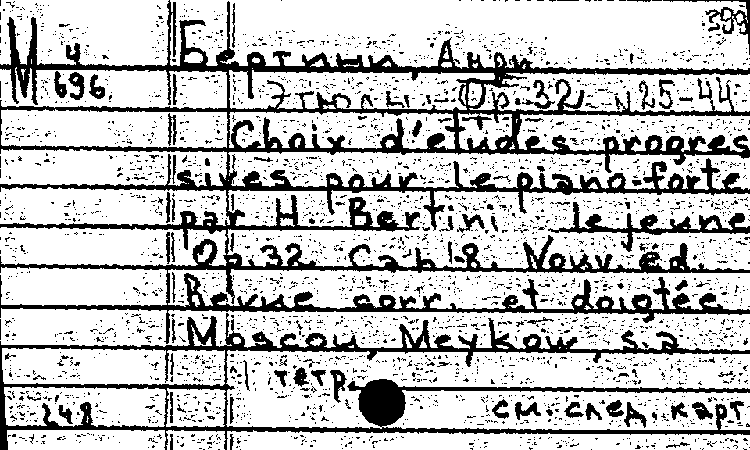 399
М 4/696
Бертини, Анри
Этюды. Op. 32. N 25-44
Choix d'etudes progres
sives pour le piano-forte
par H. Bertini le jeune
Op. 32. Cah 1-8. Nouv. éd.
Revue corr. et doigtée
Moscou, Meykow, s.a
1 тетр.
248
см. след. карт